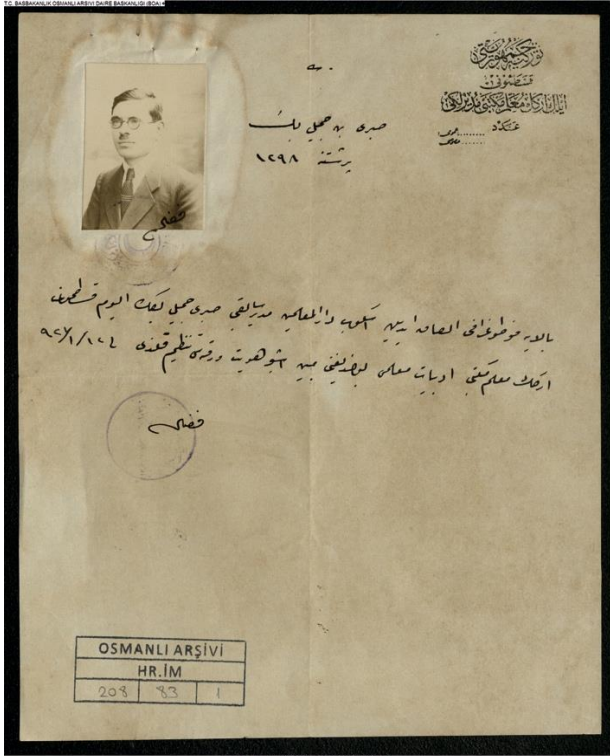 T.C. BAŞBAKANLIK OSMANLI ARŞİVİ DAİRE BAŞKANLIĞI (BOA)
توركيه جمهوريتى
قسطمونى
اركك معلم مكتبى مديرلكى
عدد
صبرى بن جميل بك
پرشتنه ١٢٩٨
بالايه فوطوغرافى الصاق ايديلن اسكوب دارالمعلمين مدير سابقى صبرى جميل بك اليوم قسطمونى
اركك معلم مكتبى ادبيات معلمى بولنديغنى مبين اشبو هويت ورقه‌سى تنظيم قلندى
OSMANLI ARŞİVİ
HR.İM
208 83 1